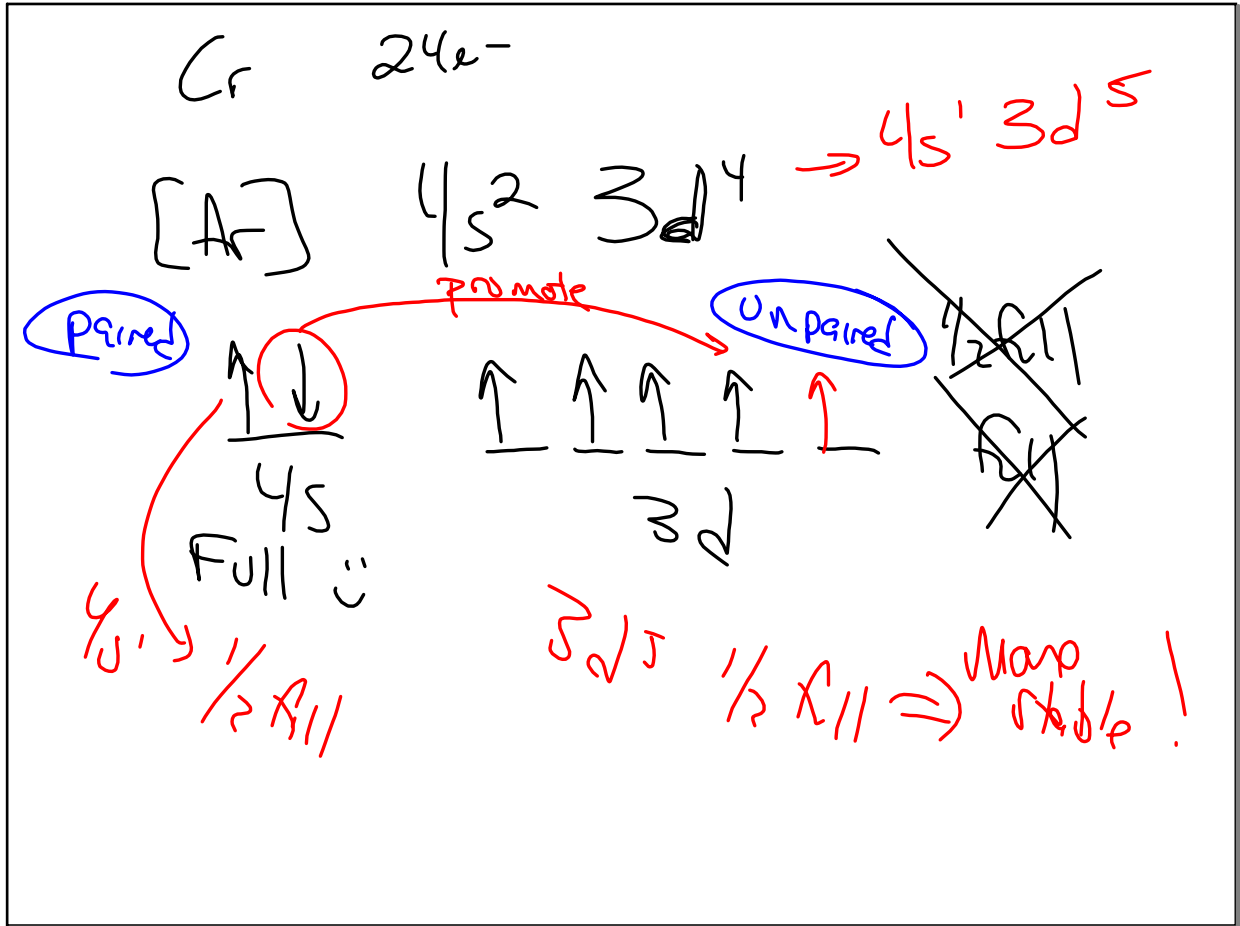 Cr 24e-
[Ar] 4s² 3d⁴ → 4s¹ 3d⁵
promote
Paired
Unpaired
½ full
full
↑ ↓ ↑ ↑ ↑ ↑ ↑
4s 3d
Full :)
4s¹ ½ full
3d⁵ ½ full ⇒ More stable !